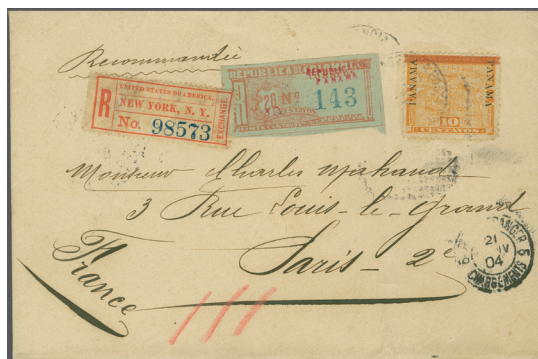 Recommandée
UNITED STATES OF AMERICA.
R
NEW YORK, N. Y.
No. 98573
EXCHANGE
REPUBLICA DE
REPUBLICA
PANAMA
R
20
No
143
PANAMA
PANAMA
10
CENTAVOS
Monsieur Charles
3 Rue Louis-le-Grand
Paris - 2e
France
ETRANGER
21
04
CHARGEMENTS